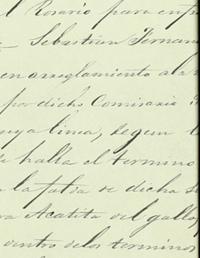 l Rosario para enp
Sebastian Fernan
en arreglamiento al
por dicho Comisario
uya linea, segun
halla el termino
la falda de dicha
Acatita del gallo,
dentro delos terminos